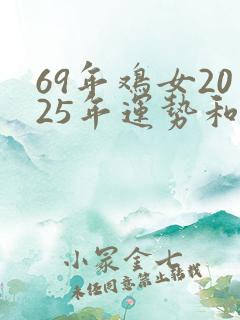 69年鸡女20
25年運势和
小冢金七
未经同意禁止转载